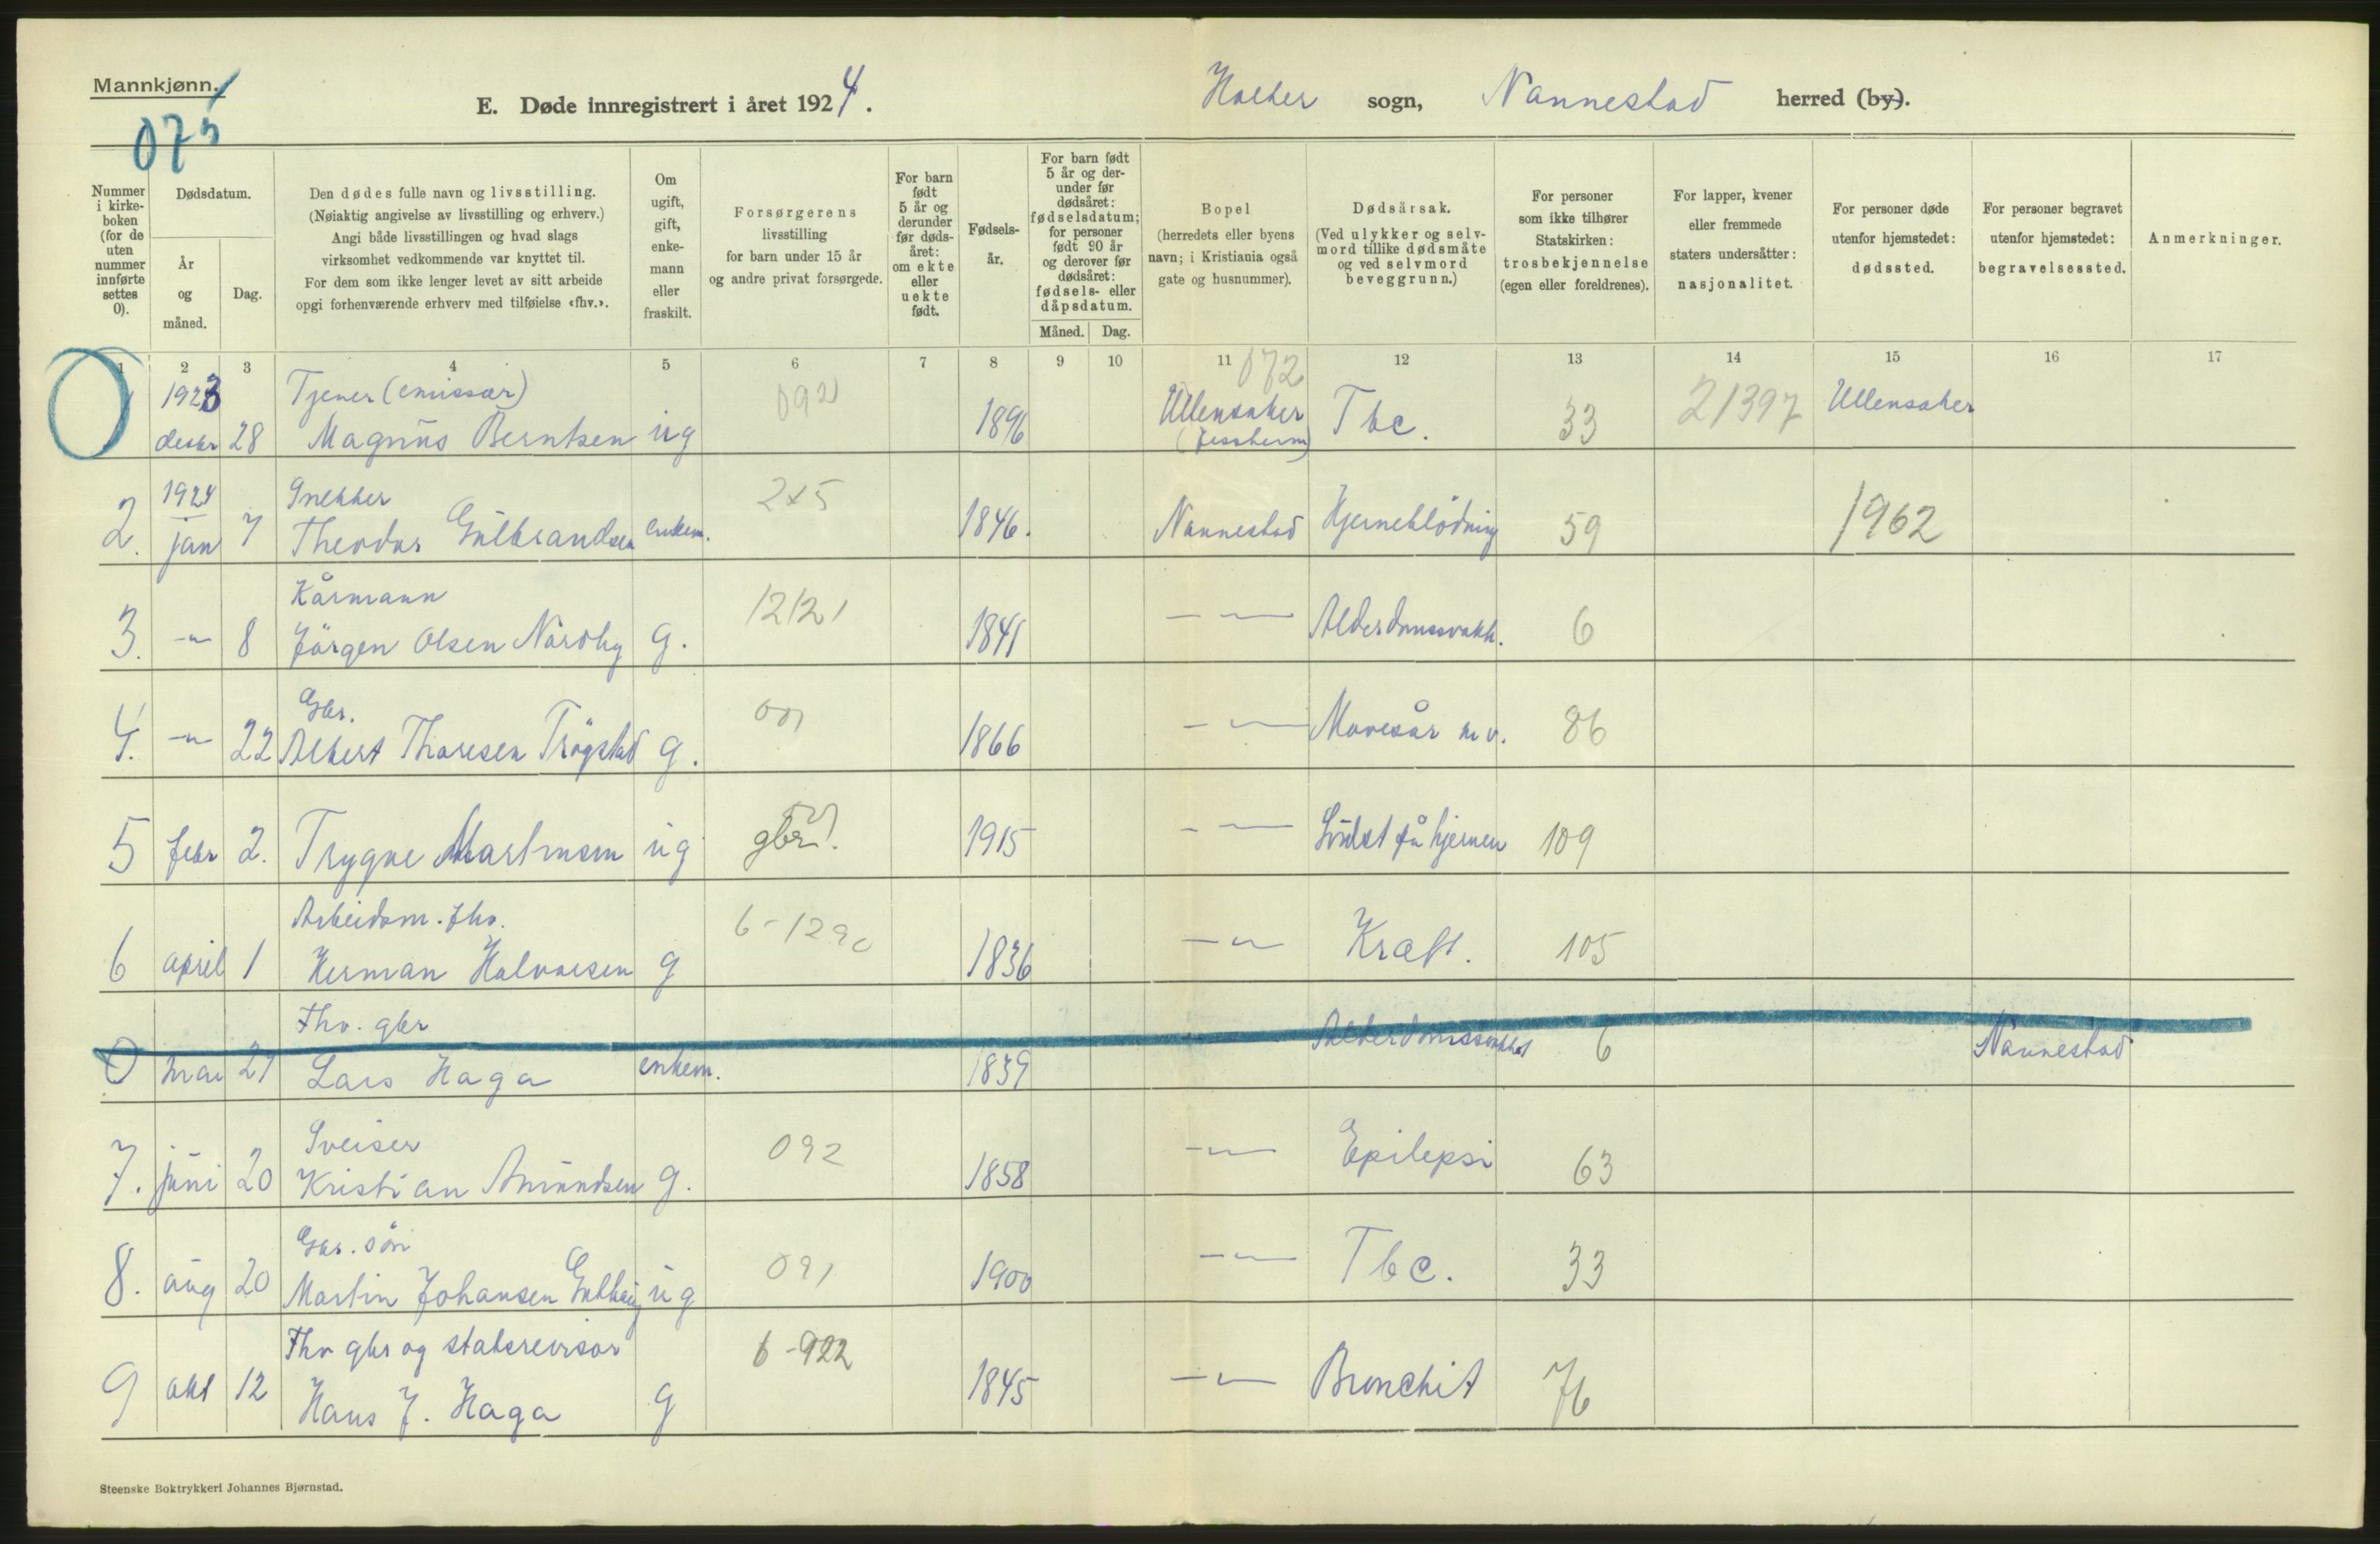 Mannkjønn.
075
E. Døde innregistrert i året 1924.
Holter sogn, Nannestad herred (by).
Nummer i kirkeboken (for de uten nummer innførte settes 0).
Dødsdatum.
År og måned.
Dag.
Den dødes fulle navn og livsstilling.
(Nøiaktig angivelse av livsstilling og erhverv.)
Angi både livsstillingen og hvad slags
virksomhet vedkommende var knyttet til.
For dem som ikke lenger levet av sitt arbeide
opgi forhenværende erhverv med tilføielse «fhv.».
Om ugift, gift, enkemann eller fraskilt.
Forsørgerens
livsstilling
for barn under 15 år
og andre privat forsørgede.
For barn født 5 år og derunder før dødsåret: om ekte eller uekte født.
Fødselsår.
For barn født 5 år og derunder før dødsåret: fødselsdatum; for personer født 90 år og derover før dødsåret: fødsels- eller dåpsdatum.
Måned. Dag.
Bopel
(herredets eller byens
navn; i Kristiania også
gate og husnummer).
Dødsårsak.
(Ved ulykker og selvmord tillike dødsmåte
og ved selvmord
beveggrunn.)
For personer
som ikke tilhører
Statskirken:
trosbekjennelse
(egen eller foreldrenes).
For lapper, kvener
eller fremmede
staters undersåtter:
nasjonalitet.
For personer døde
utenfor hjemstedet:
dødssted.
For personer begravet
utenfor hjemstedet:
begravelsessted.
Anmerkninger.
1 2 3 4 5 6 7 8 9 10 11 12 13 14 15 16 17
1923 Tjener (emissær) 092 072
desbr 28 Magnus Berntsen ug 1896 Ullensaker (Jessheim) Tbc. 33 21397 Ullensaker
1924 Snekker 2x5
2. jan 7 Theodor Gulbrandsen enkem. 1846. Nannestad Hjerneblödning 59 1962
Kårmann 12121
3. -"- 8 Jörgen Olsen Nordby g. 1841 -"- Alderdomssvakh. 6
Gbr. 001
4. -"- 22 Albert Thoresen Trögstad g. 1866 -"- Mavesår m v. 86
5 febr 2. Trygve Martinsen ug gbr. 1915 -"- Svulst på hjernen 109
Arbeidsm. fhv. 6-1290
6 april 1 Herman Halvorsen g 1836 -"- Kræft. 105
Fhv. gbr
0 mai 27 Lars Haga enkem. 1839 Alderdomssvakhet 6 Nannestad
Sveiser 092
7. juni 20 Kristian Amundsen g. 1858 -"- Epilepsi 63
Gbr. sön 091
8. aug 20 Martin Johansen ug 1900 -"- Tbc. 33
Fhv gbr og statsrevisor 6-922
9 okt 12 Hans J. Haga g 1845 -"- Bronchit 76
Steenske Boktrykkeri Johannes Bjørnstad.